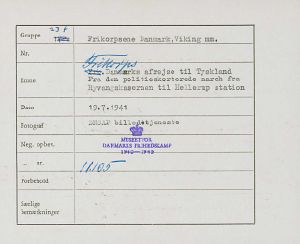 Gruppe 23 f Frikorpsene Danmark, Viking mm.
Nr.
Frikorps
Emne Danmarks afrejse til Tyskland
Fra den politieskorterede march fra
Ryvangskasernen til Hellerup station
Dato 19.7.1941
Fotograf DNSAP billedtjeneste
MUSEET FOR
Neg. opbev. DANMARKS FRIHEDSKAMP
1940-1945
- nr. 11105
Forbehold
Særlige
bemærkninger